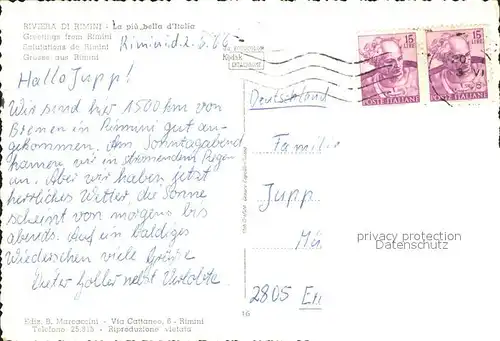 RIVIERA DI RIMINI - La più bella d'Italia
Greetings from Rimini
Salutations de Rimini
Gruesse aus Rimini
Rimini d. 2.5.68
Hallo Jupp!
Wir sind hier 1500 km von
Bremen in Rimini gut an-
gekommen. Am Sonntagabend
kamen wir in strömendem Regen
an. Aber wir haben jetzt
herrliches Wetter, die Sonne
scheint von morgens bis
abends. Auf ein baldiges
Wiedersehen viele Grüße
Dieter nebst Verlobte
Ediz. B. Marcaccini - Via Cattaneo, 6 - Rimini
Telefono 25.815 - Riproduzione vietata
16
15
LIRE
POSTE ITALIANE
15
LIRE
POSTE ITALIANE
Deutschland
Familie
Jupp
privacy protection
Datenschutz
2805